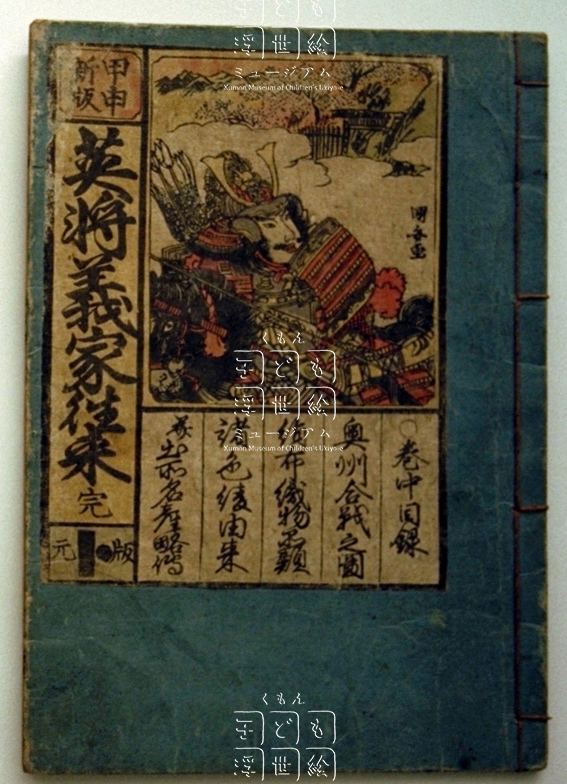 甲申
新版
英将義家往来 完
元
版
國安画
○巻中目録
奥州合戦之圖
布織物
諸
由来
名産略傳
ども
浮世絵
ミュージアム
Kumon Museum of Children's Ukiyo-e
くもん
子ども
浮世絵
ミュージアム
Kumon Museum of Children's Ukiyo-e
くもん
子ども
浮世絵